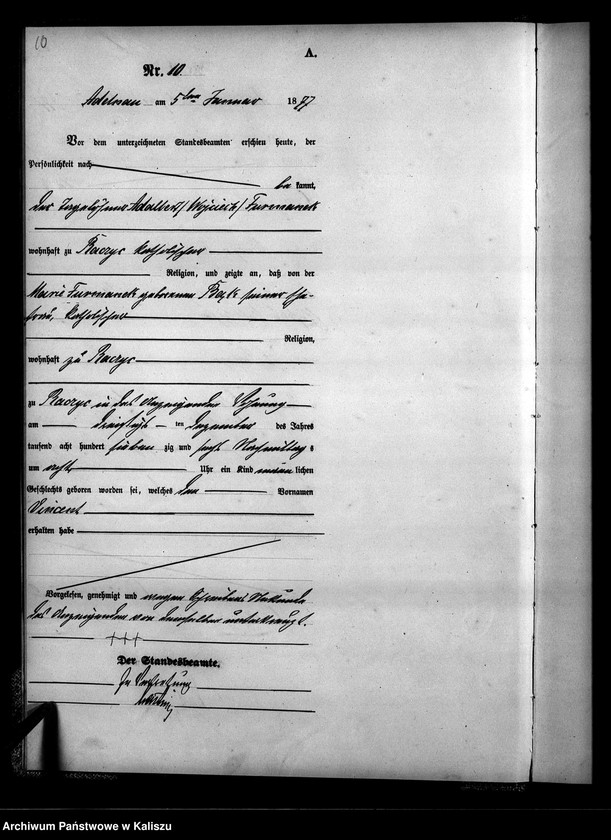 10
A.
Nr. 10.
Adelnau am 5ten Januar 1877
Vor dem unterzeichneten Standesbeamten erschien heute, der
Persönlichkeit nach
be kannt,
der Tagelöhner Adalbert /Wojciech/ Furmanek
wohnhaft zu Raczyc katholischer
Religion, und zeigte an, daß von der
Marie Furmanek geborenen Bąk seiner Ehe-
frau, katholischer
Religion,
wohnhaft zu Raczyc
zu Raczyc in des Anzeigenden Wohnung
am dreißigsten Dezember des Jahres
tausend acht hundert sieben zig und sechs Nachmittags
um acht Uhr ein Kind männlichen
Geschlechts geboren worden sei, welches den Vornamen
Vincent
erhalten habe
Vorgelesen, genehmigt und wegen Schreibens Unkunde
des Anzeigenden von demselben unterkreuzt.
+++
Der Standesbeamte.
In Vertretung
Archiwum Państwowe w Kaliszu